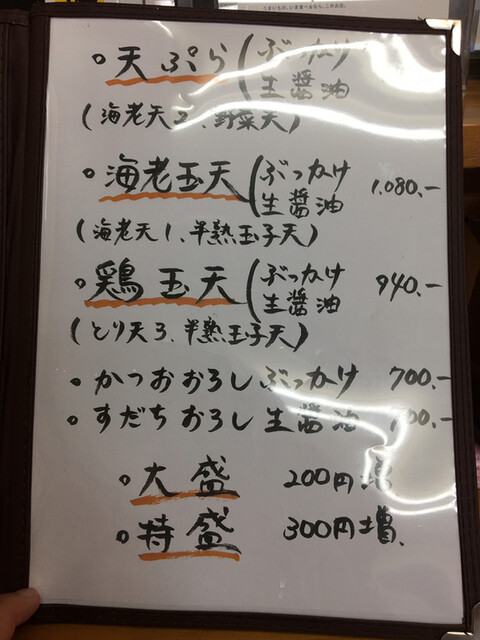 ○天ぷら(ぶっかけ
生醤油
(海老天2、野菜天)
○海老玉天(ぶっかけ 1.080.-
生醤油
(海老天1、半熟玉子天)
○鶏玉天(ぶっかけ 940.-
生醤油
(とり天3、半熟玉子天)
○かつおおろしぶっかけ 700.-
○すだちおろし生醤油 700.-
○大盛 200円増
○特盛 300円増、